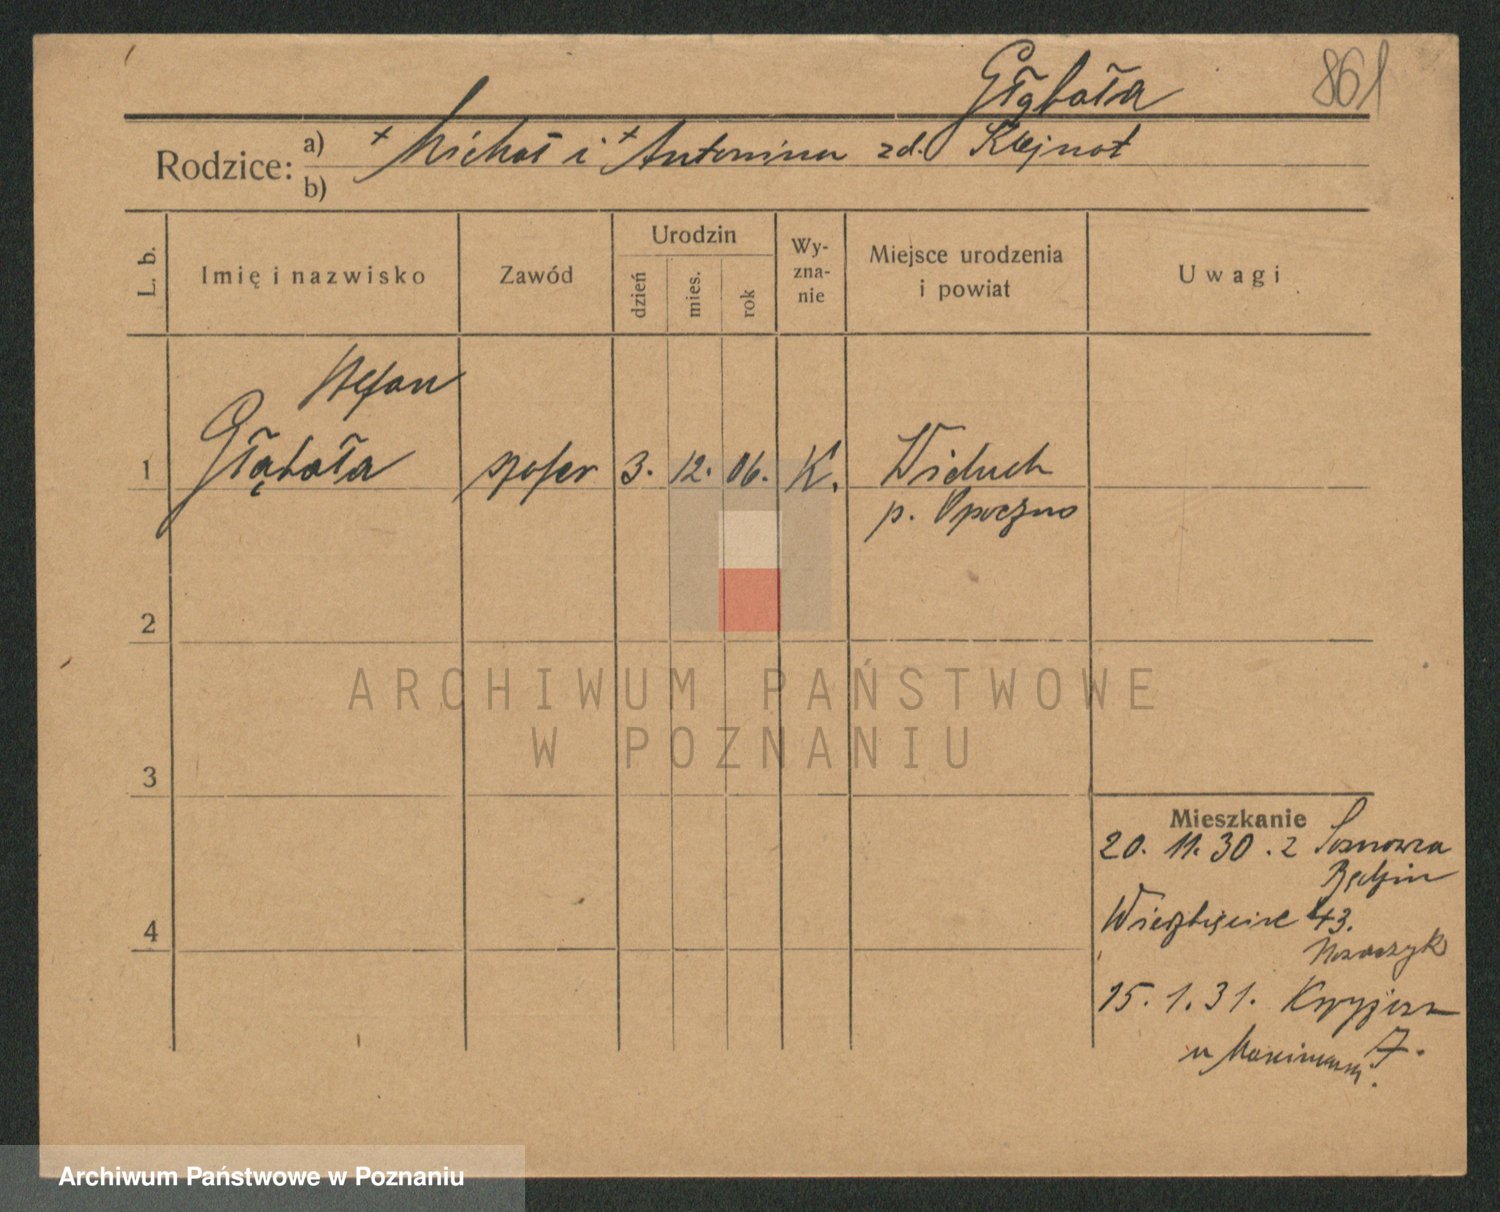 Głąbała 861
Rodzice: a) + Michał i + Antonina zd. Klejnot
b)
L. b. Imię i nazwisko Zawód Urodzin dzień mies. rok Wy-zna-nie Miejsce urodzenia i powiat Uwagi
Stefan
1 Głąbała szofer 3. 12. 06. K. Widuch
p. Opoczno
2
ARCHIWUM PAŃSTWOWE
W POZNANIU
3
Mieszkanie
20. 11. 30. z Sosnowca
Będzin
4 Wierzbięcice 43.
15. 1. 31. Krzyżowa 7.
u
Archiwum Państwowe w Poznaniu